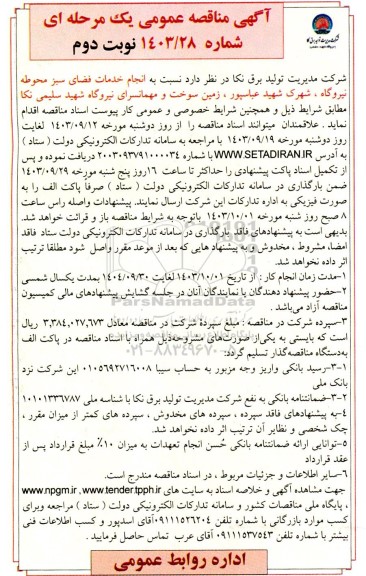 آگهی مناقصه عمومی یک مرحله ای
شماره ۱۴۰۳/۲۸ نوبت دوم
شرکت مدیریت تولید برق نکا
شرکت مدیریت تولید برق نکا در نظر دارد نسبت به انجام خدمات فضای سبز محوطه
نیروگاه ، شهرک شهید عباسپور ، زمین سوخت و مهمانسرای نیروگاه شهید سلیمی نکا
مطابق شرایط ذیل و همچنین شرایط خصوصی و عمومی کار پیوست اسناد مناقصه اقدام
نماید . علاقمندان میتوانند اسناد مناقصه را از روز دوشنبه مورخه ۱۴۰۳/۰۹/۱۲ لغایت
روز دوشنبه مورخه ۱۴۰۳/۰۹/۱۹ با مراجعه به سامانه تدارکات الکترونیکی دولت ( ستاد )
به آدرس WWW.SETADIRAN.IR با شماره ۲۰۰۳۰۹۳۷۹۱۰۰۰۰۳۴ دریافت نموده و پس
از تکمیل اسناد پاکت پیشنهادی را حداکثر تا ساعت ۱۶ روز پنج شنبه مورخ ۱۴۰۳/۰۹/۲۹
ضمن بارگذاری در سامانه تدارکات الکترونیکی دولت ( ستاد ) صرفاً پاکت الف را به
صورت فیزیکی به اداره تدارکات این شرکت ارسال نمایند. پیشنهادات واصله راس ساعت
۸ صبح روز شنبه مورخه ۱۴۰۳/۱۰/۰۱ باتوجه به شرایط مناقصه باز و قرائت خواهد شد.
بدیهی است به پیشنهادهای فاقد بارگذاری در سامانه تدارکات الکترونیکی دولت ستاد فاقد
امضا، مشروط ، مخدوش و به پیشنهاد هایی که بعد از موعد مقرر واصل شود مطلقا ترتیب
اثر داده نخواهد شد.
۱-مدت زمان انجام کار : از تاریخ ۱۴۰۳/۱۰/۰۱ لغایت ۱۴۰۴/۰۹/۳۰ بمدت یکسال شمسی
۲-حضور پیشنهاد دهندگان یا نمایندگان آنان در جلسه گشایش پیشنهادهای مالی کمیسیون
مناقصه آزاد می‌باشد .
۳-سپرده شرکت در مناقصه : مبلغ سپرده شرکت در مناقصه معادل ۳,۳۸۴,۰۲۷,۶۷۳ ریال
است که بایستی به یکی از صورت‌های مشروحه‌ذیل همراه با اسناد مناقصه در پاکت الف
به‌دستگاه مناقصه‌گذار تسلیم گردد:
۱-۳-رسید بانکی واریز وجه مزبور به حساب سیبا ۰۱۰۵۶۹۲۷۱۶۰۰۸ این شرکت نزد
بانک ملی
۲-۳-ضمانتنامه بانکی به نفع شرکت مدیریت تولید برق نکا با شناسه ملی ۱۰۱۰۱۳۳۶۷۸۷
۴-به پیشنهادهای فاقد سپرده ، سپرده های مخدوش ، سپرده های کمتر از میزان مقرر ،
چک شخصی و نظایر آن ترتیب اثر داده نخواهد شد.
۵-توانایی ارائه ضمانتنامه بانکی حُسن انجام تعهدات به میزان ۱۰٪ مبلغ قرارداد پس از
عقد قرارداد
۶-سایر اطلاعات و جزئیات مربوط ، در اسناد مناقصه مندرج است.
جهت مشاهده آگهی و خلاصه اسناد به سایت های www.npgm.ir , www.tender.tpph.ir
، پایگاه ملی مناقصات کشور و سامانه تدارکات الکترونیکی دولت ( ستاد ) مراجعه وبرای
کسب موارد بازرگانی با شماره تلفن ۰۹۱۱۱۵۲۶۲۰۴ آقای اسدپور و کسب اطلاعات فنی
بیشتر با شماره تلفن ۰۹۱۱۱۵۳۷۵۴۳ آقای عرب تماس حاصل فرمایید .
اداره روابط عمومی
ParsNamadData
۰۲۱-۸۸۳۴۹۶۷۰